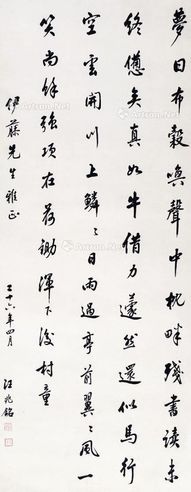 夢回布穀喚聲中枕畔殘書讀未
終憊矣真如牛借力蘧然還似馬行
空雲開川上鱗〻日雨過亭前翼〻風一
笑尚餘強項在荷鋤渾不後村童
伊藤先生雅正
二十六年四月 汪兆銘
Artron.Net